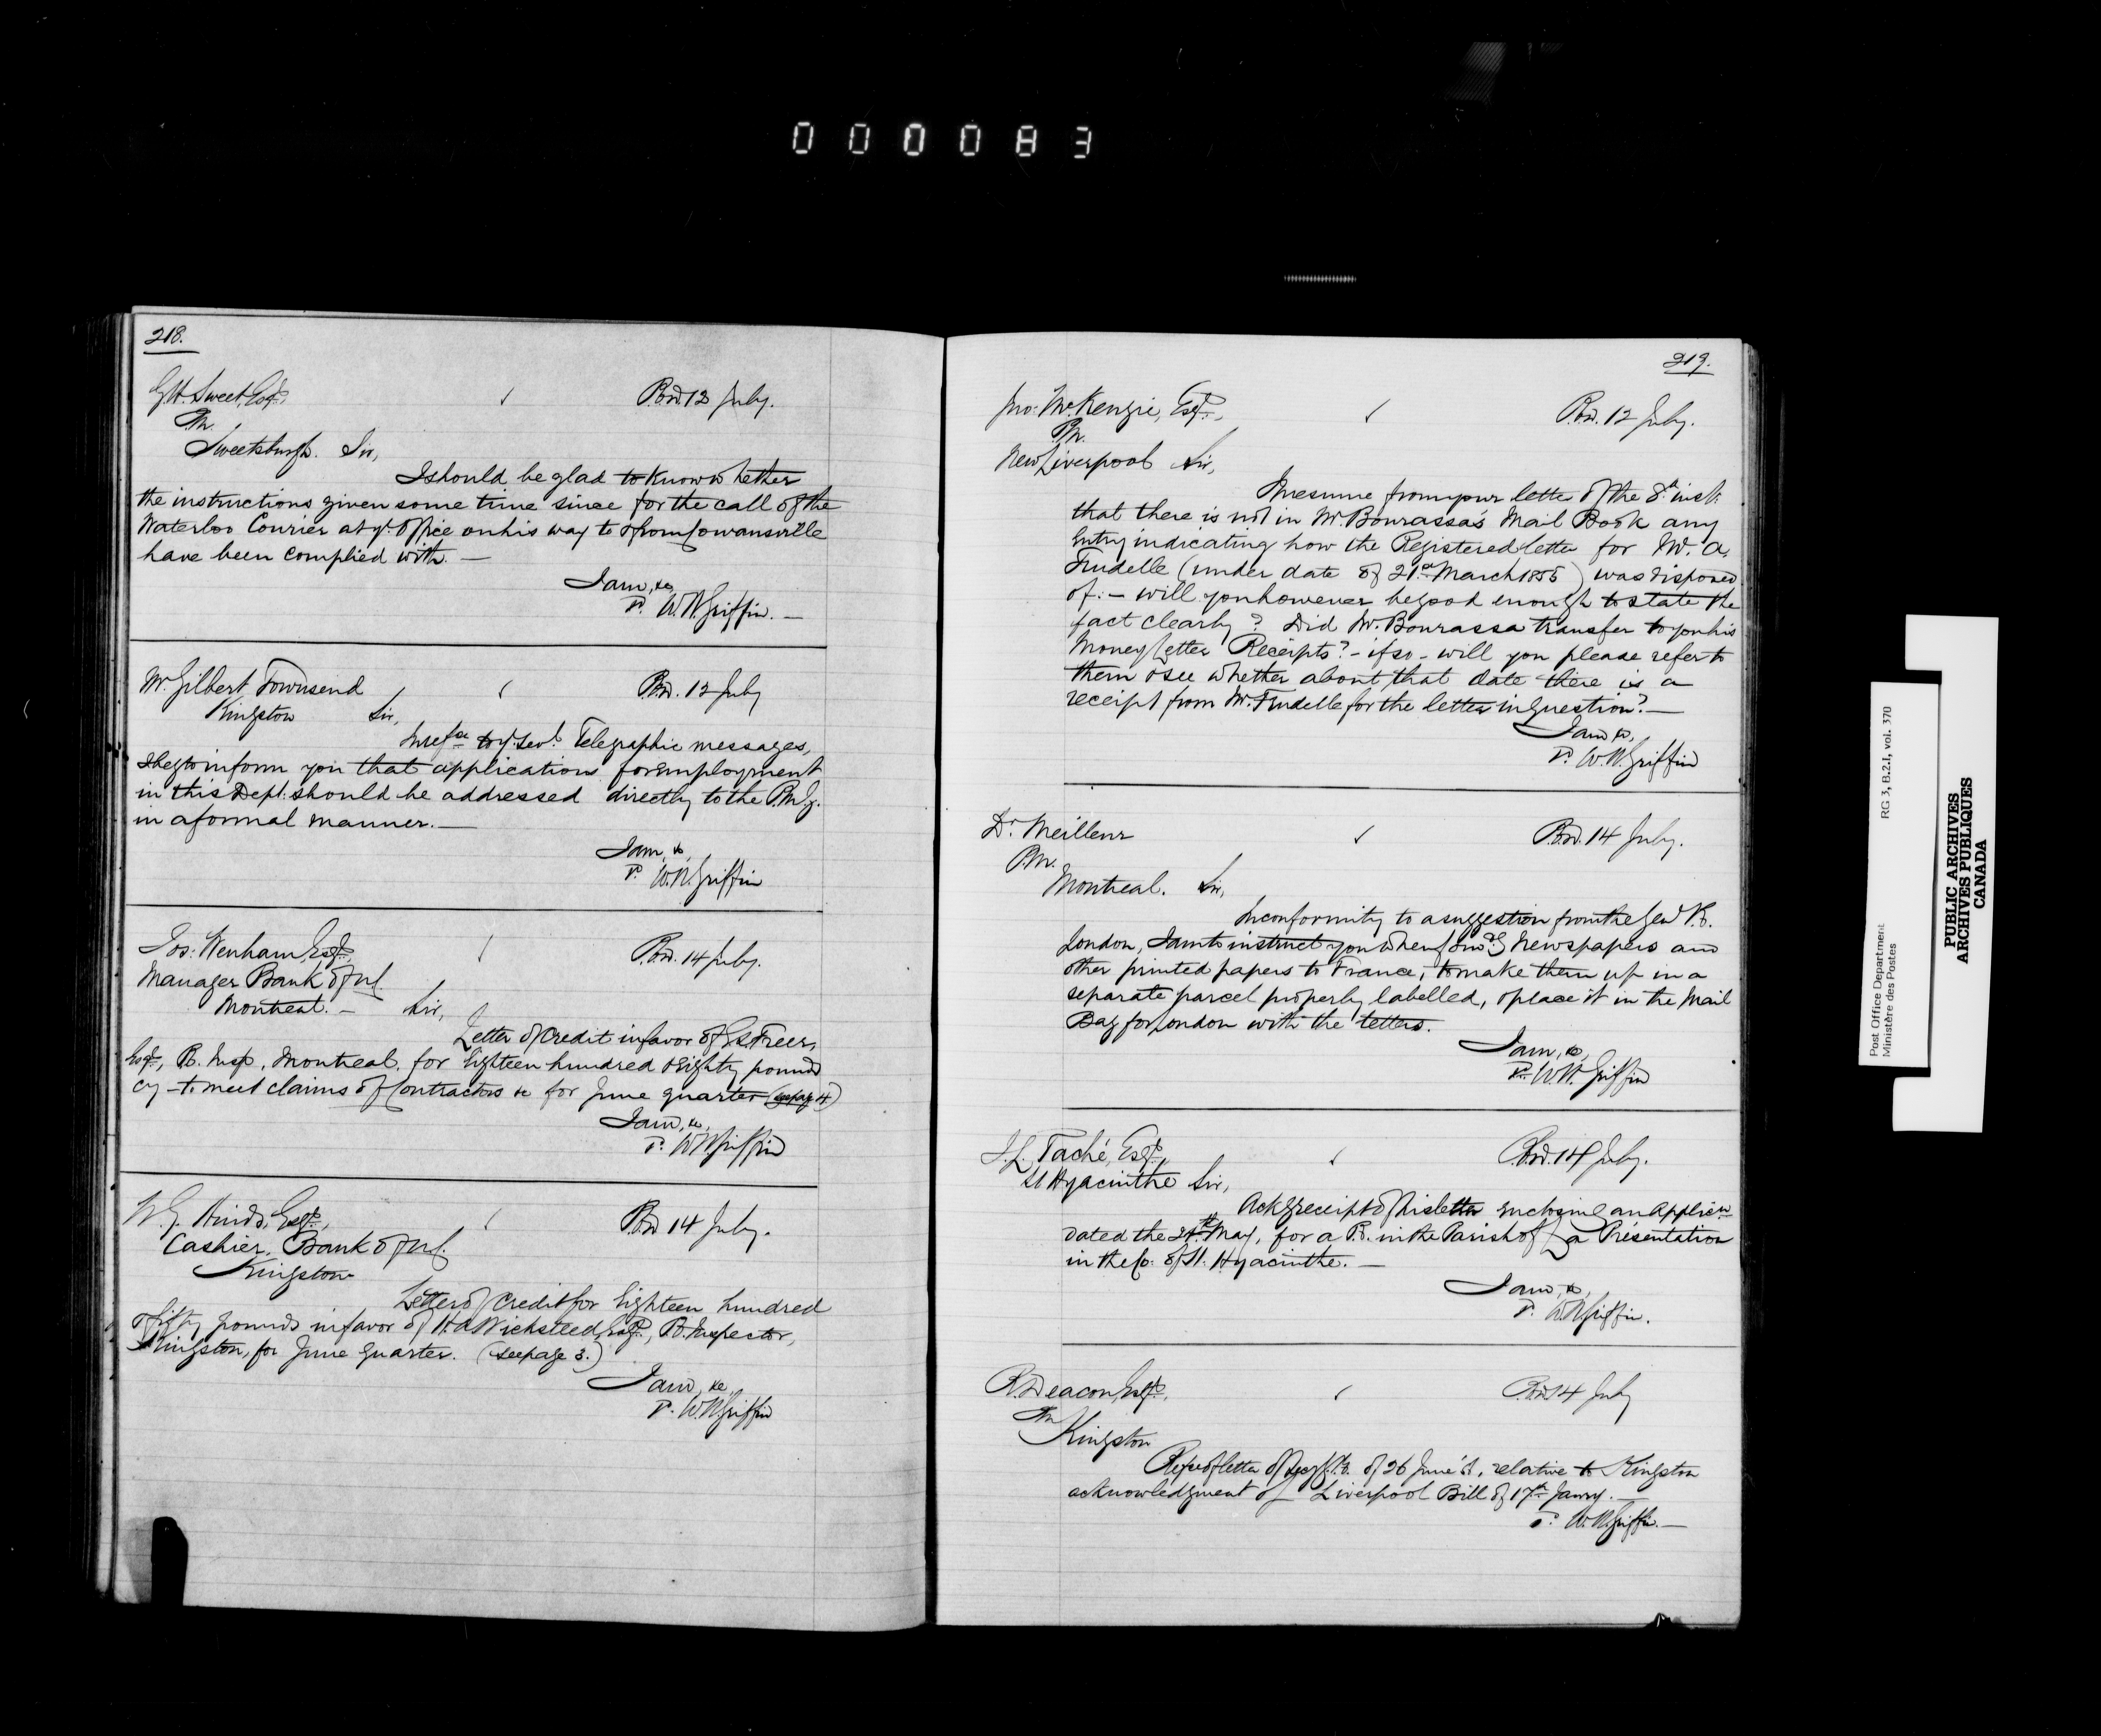 000083
218.
G.H. Sweet, Esqr.,
P.M. P.O.D. 12 July.
Sweetsburgh. Sir,
I should be glad to know whether
the instructions given some time since for the call of the
Waterloo Courier at yr. office on his way to & from Cowansville
have been complied with. —
I am, &c,
P. W.H. Griffin. —
Mr. Gilbert Townsend P.O.D. 12 July
Kingston Sir,
In refce to yr. sevl. Telegraphic messages,
I beg to inform you that applications for employment
in this Dept. should be addressed directly to the P.M.G.
in a formal manner. —
I am, &c,
P. W.H. Griffin
Jos: Wenham, Esqr., P.O.D. 14 July.
Manager Bank of M.
Montreal. — Sir,
Letter of Credit in favor of Freer,
Esqr., P.O. Insp, Montreal, for Eighteen hundred & Eighty pounds
Cy — to meet claims of Contractors &c for June quarter (see page 4)
I am, &c,
P. W.H. Griffin
W.G. Hinds, Esqr., P.O.D. 14 July.
Cashier, Bank of M.
Kingston
Letter of Credit for Eighteen hundred
& fifty pounds in favor of H.A. Wicksteed, Esqr., P.O. Inspector,
Kingston, for June quarter. (see page 3.)
I am, &c,
P. W.H. Griffin
219.
Jno: McKenzie, Esqr., P.O.D. 12 July.
P.M.
New Liverpool Sir,
I presume from your letter of the 8th inst.
that there is not in Mr. Bourassa's Mail Book any
Entry indicating how the Registered letter for Mr. A.
Trudelle (under date of 21st March 1855) was disposed
of: — will you however be good enough to state the
fact clearly? Did Mr. Bourassa transfer to you his
Money Letter Receipts? — if so — will you please refer to
them & see whether about that date there is a
receipt from Mr. Trudelle for the letter in question? —
I am &c,
P. W.H. Griffin
Dr. Meilleur P.O.D. 14 July.
P.M.
Montreal. Sir,
In conformity to a suggestion from the Genl P.O.
London, I am to instruct you when forwdg Newspapers and
other printed papers to France, to make them up in a
separate parcel properly labelled, & place it in the Mail
Bag for London with the letters.
I am, &c,
P. W.H. Griffin
J.L. Taché, Esqr., P.O.D. 14 July.
St Hyacinthe Sir,
Ackg receipt of his letter enclosing an Applicn
dated the 24th May, for a P.O. in the Parish of La Présentation
in the Co: of St. Hyacinthe. —
I am, &c,
P. W.H. Griffin.
R. Deacon, Esqr., P.O.D. 14 July
P.M.
Kingston
Refce of letter of 26 June relative to Kingston
acknowledgment of Liverpool Bill of 17th Janry. —
P. W.H. Griffin. —
Post Office Department RG 3, B.2.I, vol. 370
Ministère des Postes
PUBLIC ARCHIVES
ARCHIVES PUBLIQUES
CANADA